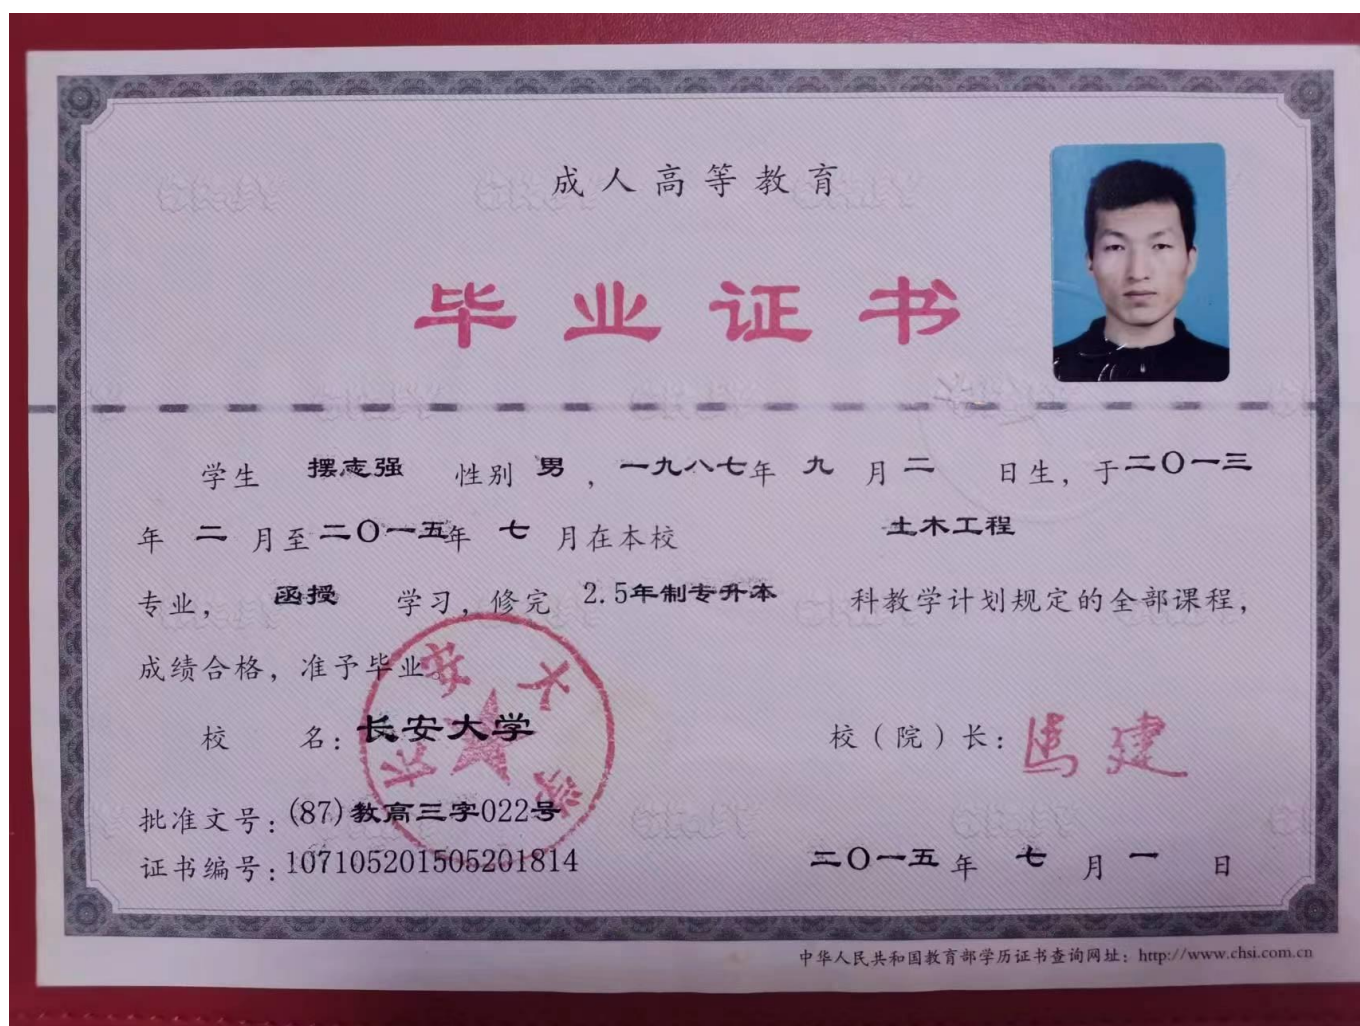 成人高等教育
毕业证书
学生 摆志强 性别 男 ，一九八七年 九 月 二 日生，于二〇一三
年 二 月至二〇一五年 七 月在本校 土木工程
专业， 函授 学习，修完 2.5年制专升本 科教学计划规定的全部课程，
成绩合格，准予毕业。
校 名：长安大学
校（院）长：马建
长安大学
批准文号：(87)教高三字022号
证书编号：107105201505201814
二〇一五 年 七 月 一 日
中华人民共和国教育部学历证书查询网址：http://www.chsi.com.cn